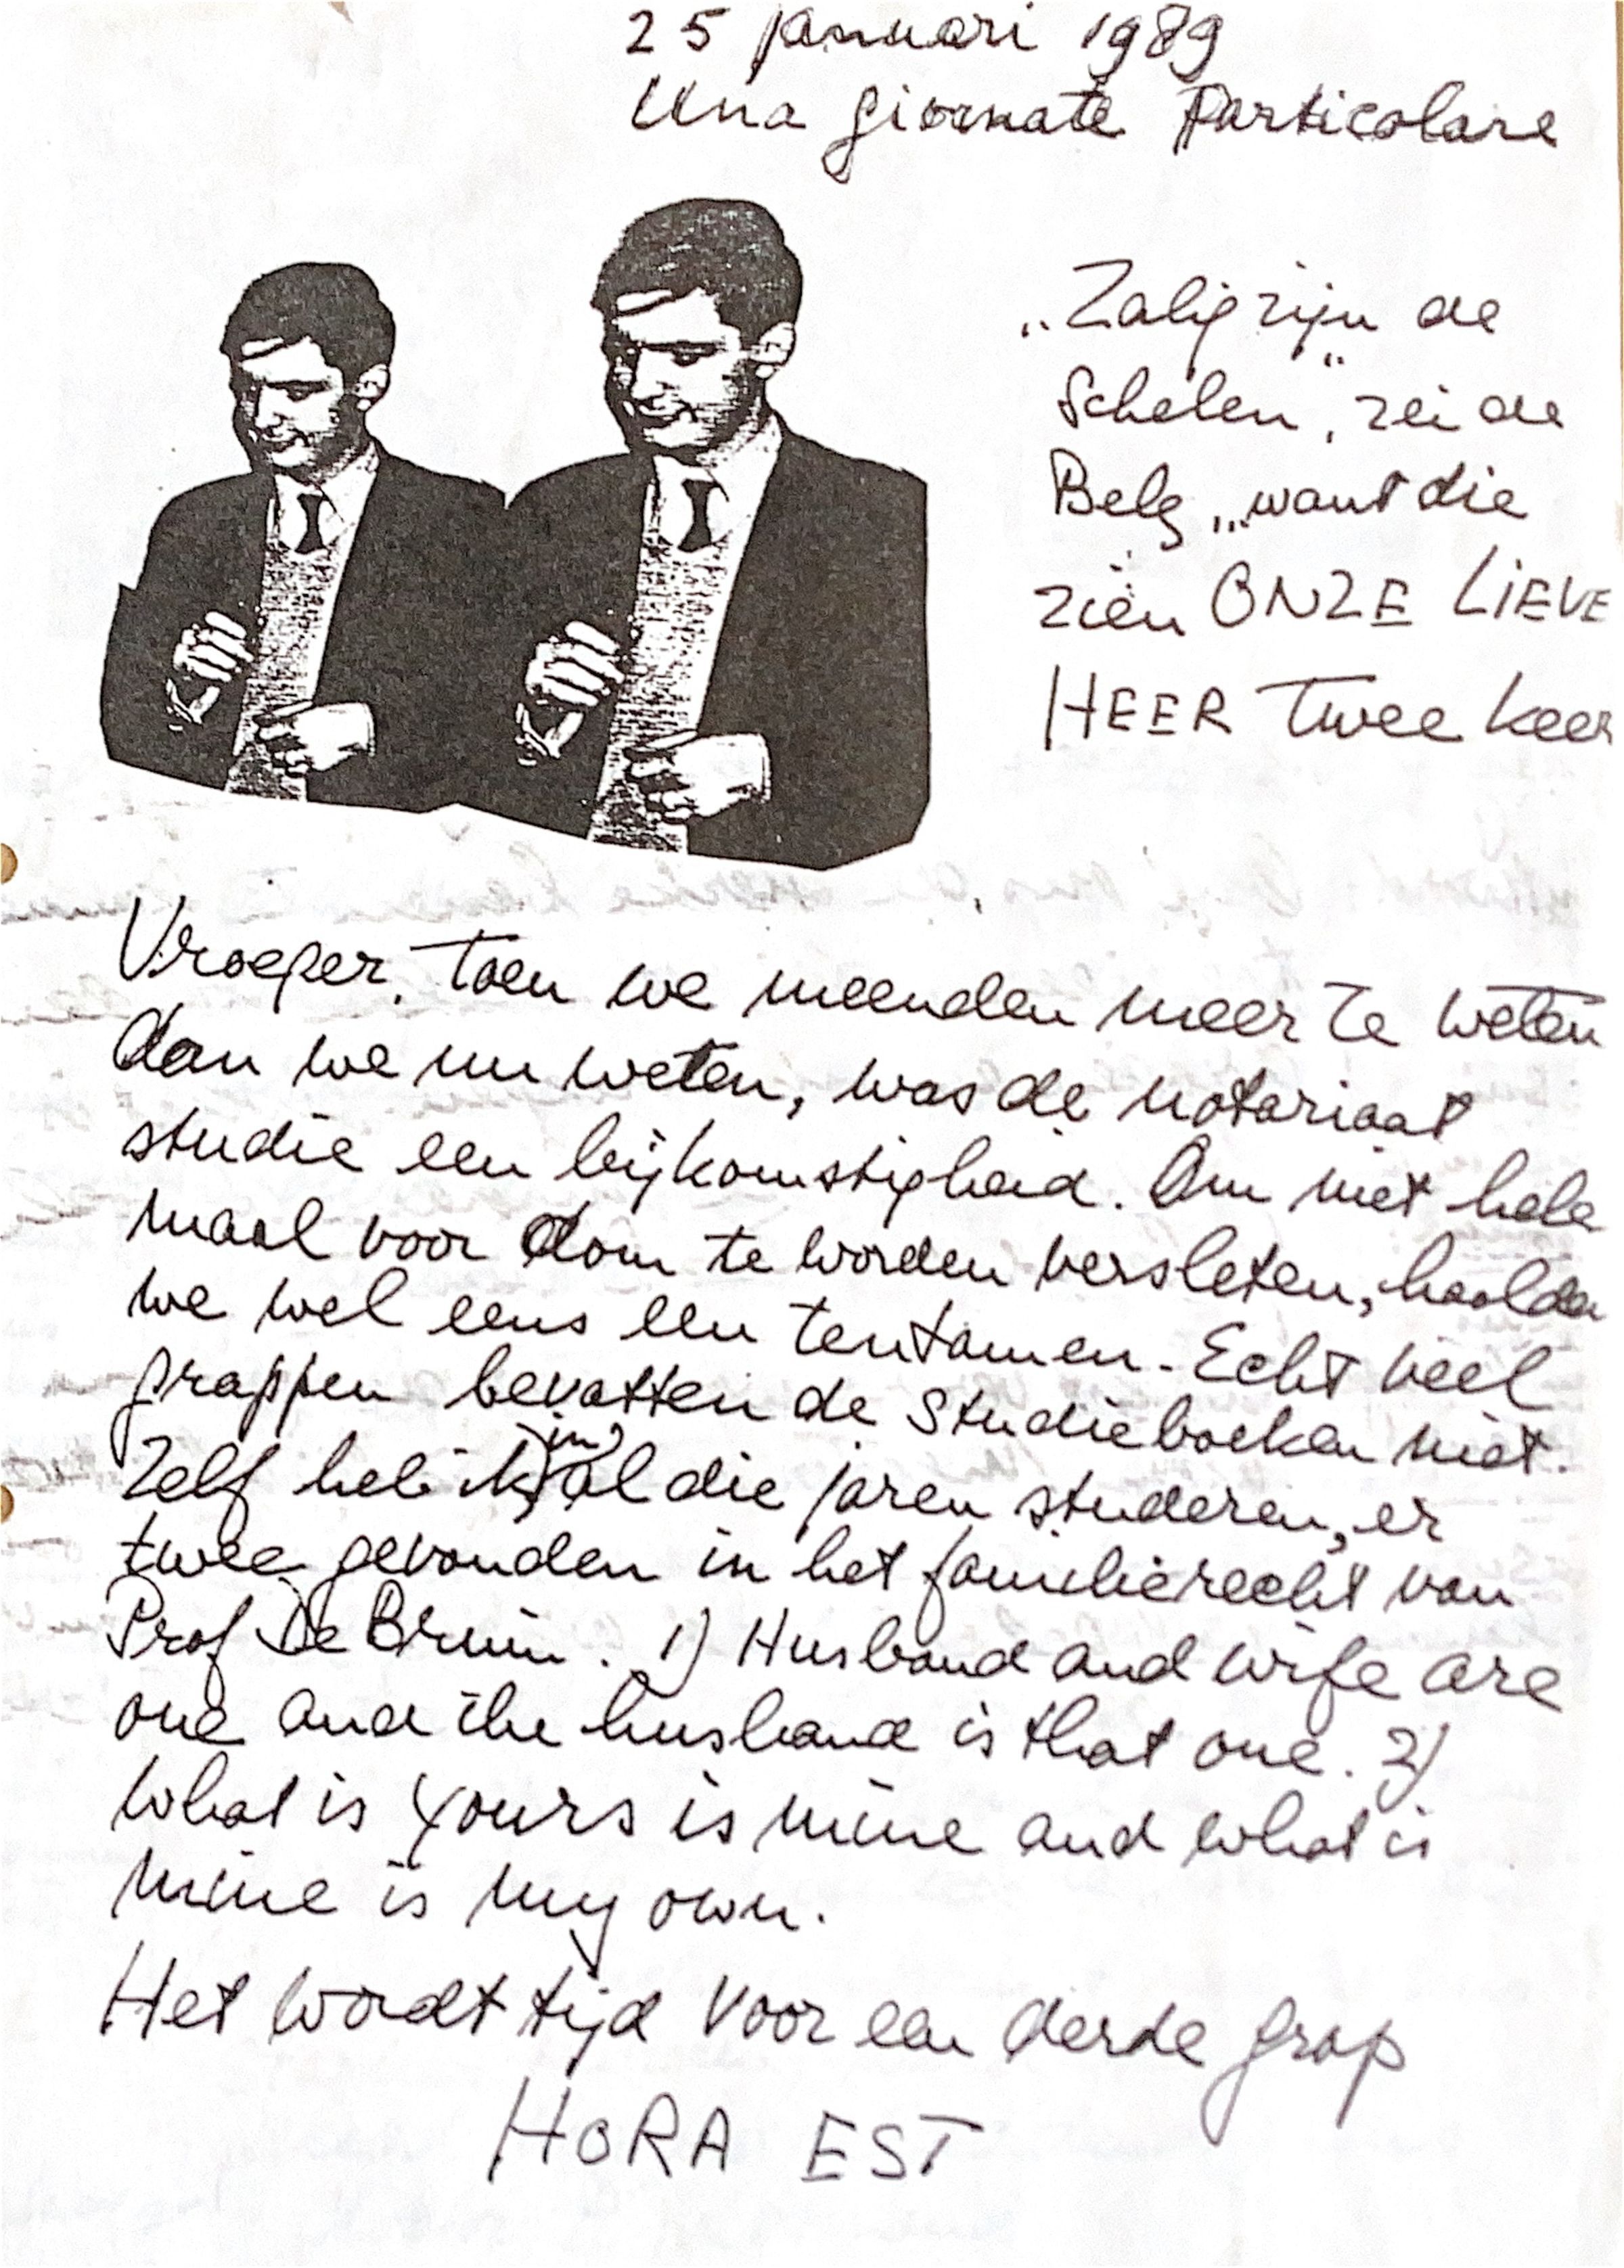 25 januari 1989
Una giornate Particolare
„Zalig zijn de
Schelen”, zei de
Belg „want die
zien ONZE LIEVE
HEER twee keer
Vroeger, toen we meenden meer te weten
dan we nu weten, was de notariaat
studie een bijkomstigheid. Om niet hele
maal voor dom te worden versleten, haalden
we wel eens een tentamen. Echt veel
grappen bevatten de studieboeken niet.
Zelf heb ik, in al die jaren studeren, er
twee gevonden in het familierecht van
Prof De Bruin. 1) Husband and wife are
one and the husband is that one. 2)
What is yours is mine and what is
mine is my own.
Het wordt tijd voor een derde grap
HORA EST